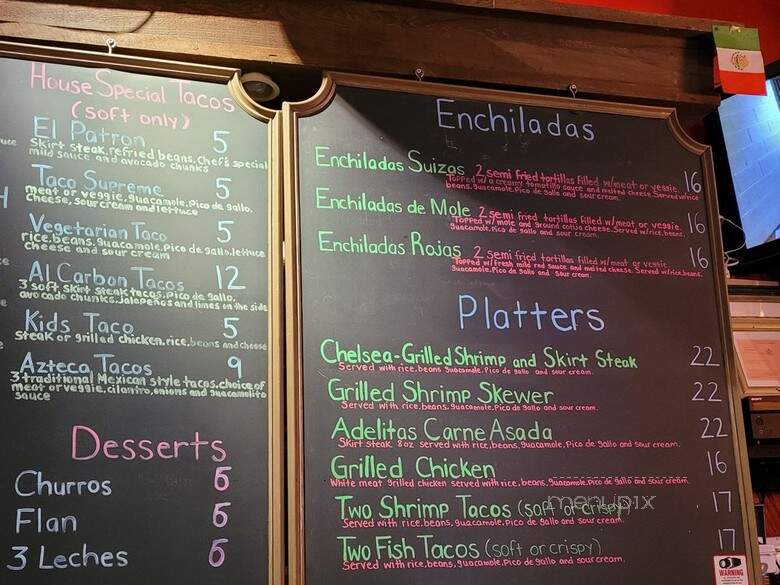 House Special Tacos
(soft only)
El Patron 5
skirt steak, refried beans, chef's special
mild sauce and avocado chunks
Taco Supreme 5
meat or veggie, guacamole, Pico de gallo,
cheese, sour cream and lettuce
Vegetarian Taco 5
rice, beans, guacamole, Pico de gallo, lettuce
cheese and sour cream
Al Carbon Tacos 12
3 soft skirt steak tacos, Pico de gallo,
avocado chunks, jalapeños and limes on the side
Kids Taco 5
steak or grilled chicken, rice, beans and cheese
Azteca Tacos 9
3 traditional Mexican style tacos, choice of
meat or veggie, cilantro, onions and guacamolito
sauce
Desserts
Churros 6
Flan 6
3 Leches 6
Enchiladas
Enchiladas Suizas 2 semi fried tortillas filled w/meat or veggie. 16
Topped w/a creamy tomatillo sauce and melted cheese. Served w/rice
beans, guacamole, Pico de gallo and sour cream.
Enchiladas de Mole 2 semi fried tortillas filled w/meat or veggie. 16
Topped w/ mole and ground cotija cheese. Served w/rice, beans,
guacamole, Pico de gallo and sour cream.
Enchiladas Rojas 2 semi fried tortillas filled w/meat or veggie. 16
Topped w/fresh mild red sauce and melted cheese. Served w/rice, beans,
guacamole, Pico de gallo and sour cream.
Platters
Chelsea-Grilled Shrimp and Skirt Steak 22
Served with rice, beans, guacamole, Pico de gallo and sour cream.
Grilled Shrimp Skewer 22
Served with rice, beans, guacamole, Pico de gallo and sour cream.
Adelitas Carne Asada 22
Skirt steak 8oz served with rice, beans, guacamole, Pico de gallo and sour cream.
Grilled Chicken 16
White meat grilled chicken served with rice, beans, guacamole, Pico de gallo and sour cream.
Two Shrimp Tacos (soft or crispy) 17
Served with rice, beans, guacamole, Pico de gallo and sour cream.
Two Fish Tacos (soft or crispy) 17
Served with rice, beans, guacamole, Pico de gallo and sour cream.
menupix
WARNING